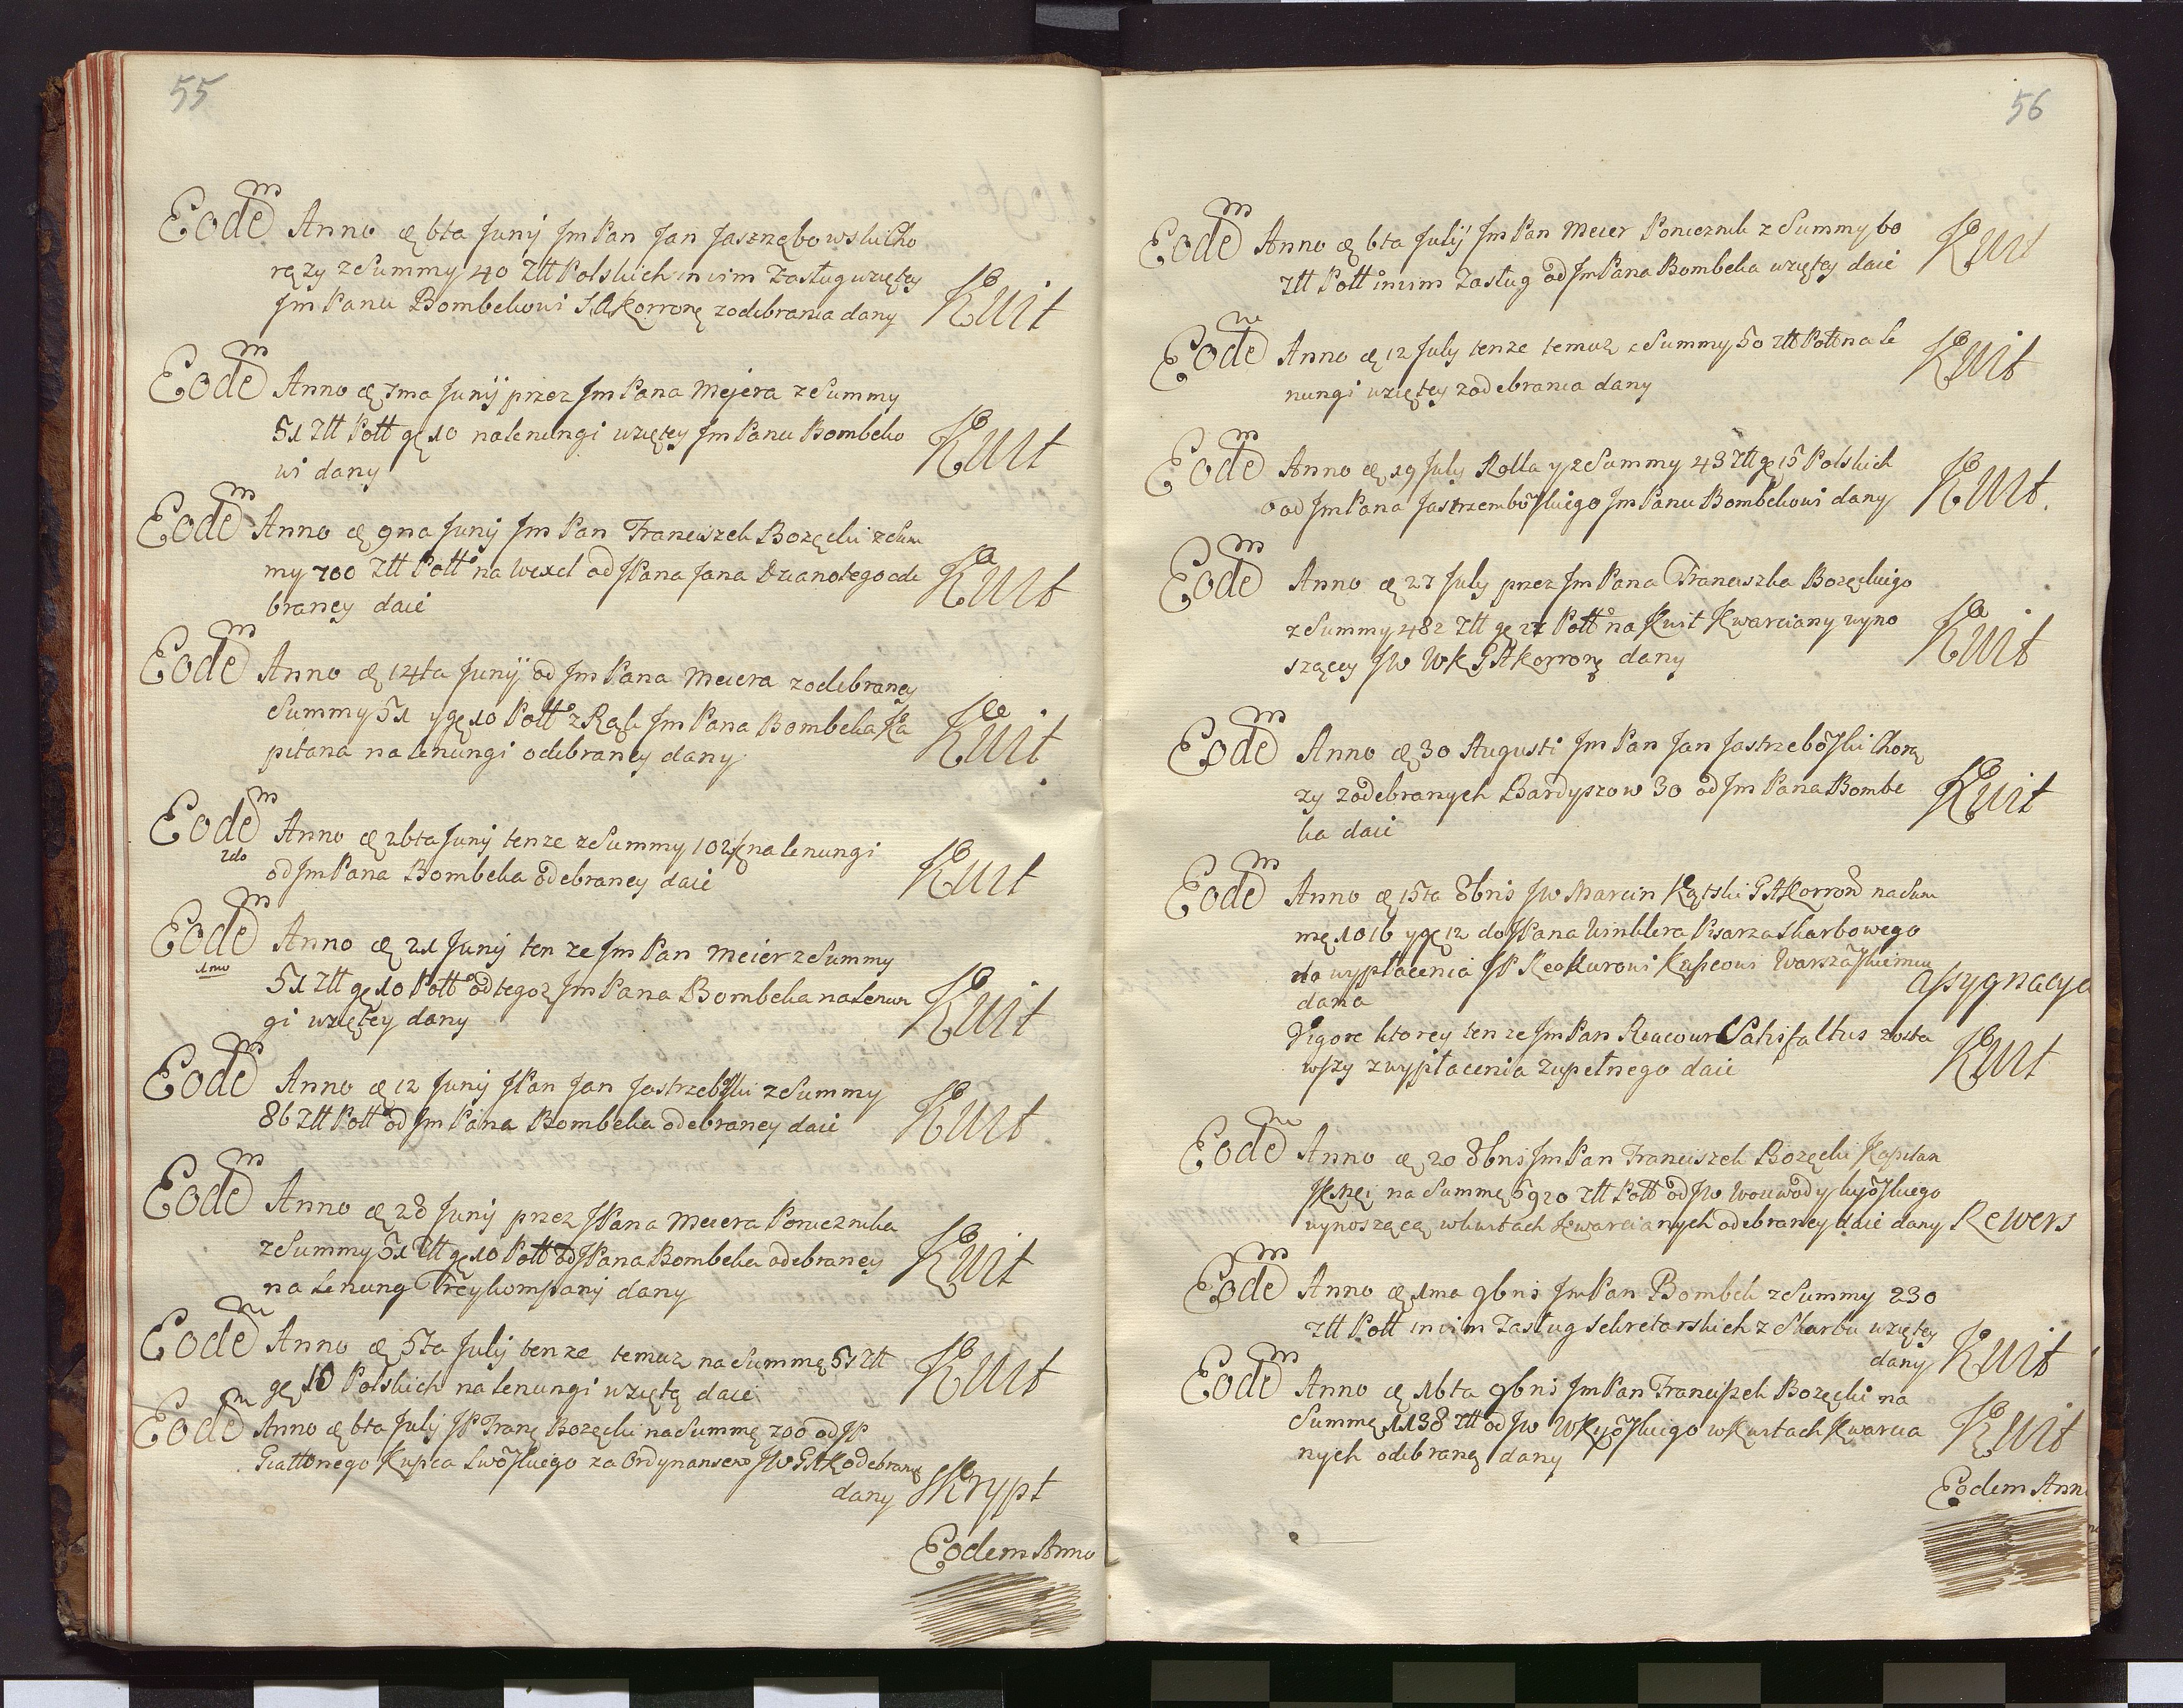 55
Eodem Anno die 6ta Junij Jm Pan Jan Jasznębowski Cho
ręzy z Summy 40 Ztt Polskich in vim Zasług wziętey
Jm Panu Bombekowi SAKorronę z odebrania dany Kwit
Eodem Anno die 7ma Junij przez Jm Pana Mejera z Summy
51 Ztt Poll gę 10 na lenungi wziętey Jm Panu Bombeko
wi dany Kwit
Eodem Anno die 9na Junij Jm Pan Franciszek Bozęcki z Sum
my 700 Ztt Poll na Wexel od JPana Jana Dzianotego ode
braney daie Kwit
Eodem Anno die 14ta Junij od Jm Pana Meiera z odebraney
Summy 51 y gę 10 Poll z Rąk Jm Pana Bombeka Ka
pitana na lenungi odebraney dany Kwit
Eodem Anno die 26ta Junij tenze z Summy 102 na lenungi
2do
od Jm Pana Bombeka odebraney daie Kwit
Eodem Anno die 21 Junij ten ze Jm Pan Meier z Summy
1mo
51 Ztt gę 10 Poll od tegoz Jm Pana Bombeka na lenun
gi wziętey dany Kwit
Eodem Anno die 12 Junij JPan Jan Jastrzebski z Summy
86 Ztt Poll od Jm Pana Bombeka odebraney daie Kwit
Eodem Anno die 28 Junij przez JPana Meiera Porucznika
z Summy 51 Ztt gę 10 Poll od JPana Bombeka odebraney
na Lenung Trzy kompanij dany Kwit
Eodem Anno die 5ta Julij tenze temuz na Summę 51 Ztt
gę 10 Polskich na lenungi wziętą daie Kwit
Eodem Anno die 6ta Julij JP Franc Bozęcki na Summę 700 od JP
Giattonego Kupca Lwoskiego za Ordynansem JW GAK odebraną
dany Skrypt
Eodem Anno
56
Eodem Anno die 6ta Julij Jm Pan Meier Porucznik z Summy 60
Ztt Poll in vim Zasług od Jm Pana Bombeka wziętey daie Kwit
Eodem Anno die 12 July tenze temuz z Summy 50 Ztt Poll na le
nungi wziętey z odebrania dany Kwit
Eodem Anno die 19 July Rolla y z Summy 43 Ztt gę 15 Polskich
od Jm Pana Jastrzemboskiego Jm Panu Bombekowi dany Kwit.
Eodem Anno die 27 July przez Jm Pana Franciszka Bozęckiego
z Summy 482 Ztt gę 22 Poll na Kwit Kwarciany wyno
szącey JW WK GAKorronę dany Kwit
Eodem Anno die 30 Augusti Jm Pan Jan Jastrzeboski Chorą
zy z odebranych Bardyszow 30 od Jm Pana Bombe
ka daie Kwit
Eodem Anno die 15ta 8bris JW Marcin Kątski GAKorron na Sum
mę 1016 y gę 12 do JPana Winklera Pisarza Skarbowego
do wypłacenia JP Reakurowi Kupcowi Warszaskiemu
dana Assygnacya
Vigore ktorey ten ze Jm Pan Reacour Satisfaltus zosta
wszy z wypłacenia zupełnego daie Kwit
Eodem Anno die 20 8bris Jm Pan Franciszek Bozęcki Kapitan
na Summę 5920 Ztt Poll od JW Woiewody kijoskiego
wynoszącą w kwitach kwarcianych odebraney daie dany Rewers
Eodem Anno die 1ma 9bris Jm Pan Bombek z Summy 230
Ztt Poll in vim Zasług Sekretarskich z Skarbu wziętey
dany Kwit
Eodem Anno die 16ta 9bris Jm Pan Franciszek Bozęcki na
Summę 1138 Ztt od JW WKijoskiego w Kwitach Kwarcia
nych odebraną dany Kwit
Eodem Anno